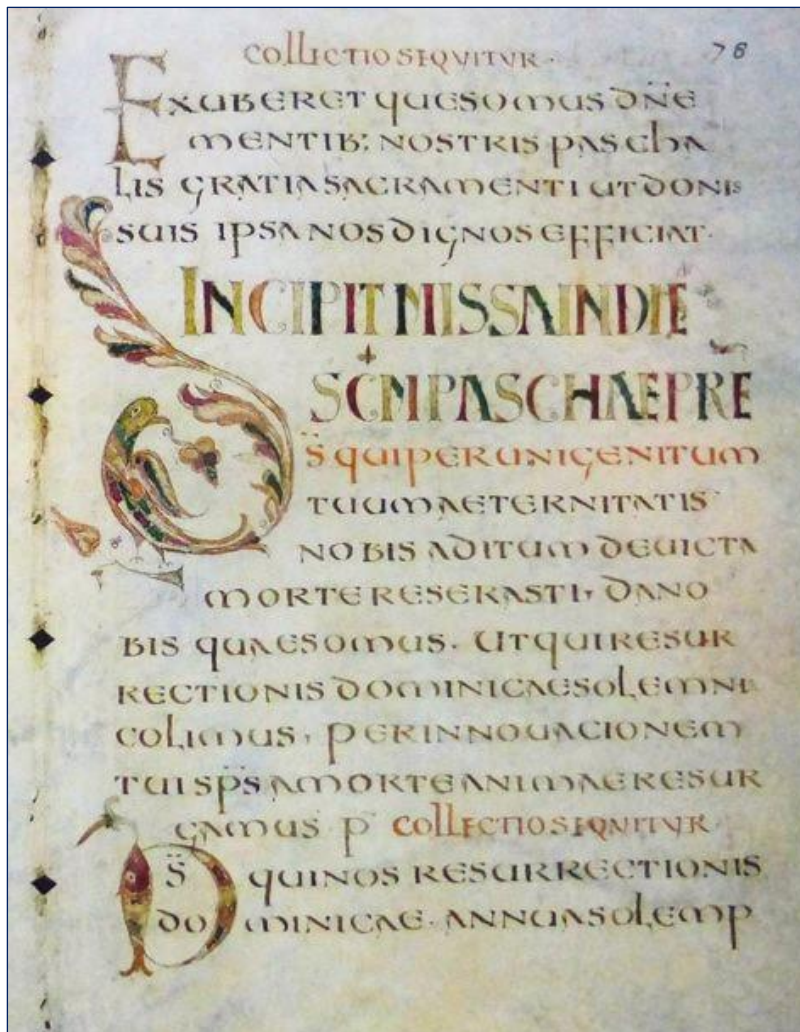 COLLECTIO SEQVITVR · 76
EXUBERET QUESOMUS DNE
MENTIB: NOSTRIS PASCHA
LIS GRATIA SACRAMENTI UT DONIS
SUIS IPSA NOS DIGNOS EFFICIAT·
INCIPIT MISSA IN DIE
SCM PASCHAE PRE
DS QUI PER UNIGENITUM
TUUM AETERNITATIS
NOBIS ADITUM DEUICTA
MORTE RESERASTI, DA NO
BIS QUAESOMUS· UT QUI RESUR
RECTIONIS DOMINICAE SOLEMNI
COLIMUS, PER INNOUACIONEM
TUI SPS A MORTE ANIMAE RESUR
GAMUS P COLLECTIO SEQVITVR
DS QUI NOS RESURRECTIONIS
DOMINICAE· ANNUA SOLEMP